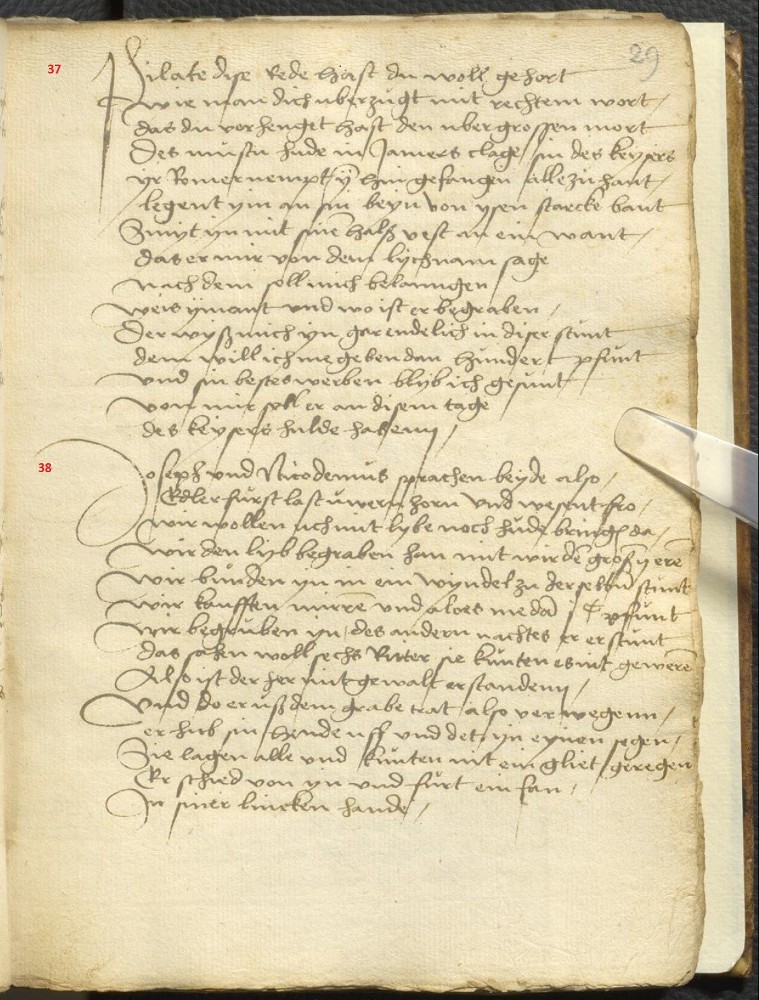 29
37
Pilate dise rede hast du woll gehort
wie man dich uberzugt mit rechtem wort /
das du verhenget hast den ubergrossen mort
Des mustu hude in Jamers clage / sin des keysers
yr Romer nempt yn hin gefangen alle zu hant /
legent ym an sin beyn von ysen starcke bant
Smyt yn mit sinē halß vest an ein want /
das er mir von dem lychnam sage
nach dem soll mich belanngen
weis ymant und wo ist er begraben /
Der wyß mich yn gar endelich in diser stunt
dem will ich me geben dan hundert pfunt
und sin bestes werben blyb ich gesunt
von mir soll er an disem tage
des keysers hulde habenn /
38
Joseph und Nicodemus sprachen beyde also /
Edler furst last uwern zorn und wesent fro /
wir wollen uch mit lybe noch hude bringē da /
wir den lyb begraben han mit wirdē großē erē
wir bunden yn in ein wyndel zu der selbē stunt
wir kaufften mirrē und aloes me dā j c pfunt
wir begruben yn / des andern nachtes er erstunt
das sahen woll sechs Ritter sie kunten es nit gewerē
Also ist der her mit gewalt erstandenn /
Und do er uß dem grabe trat also verwegenn /
er hub sin hende uff und det yn eynen segen /
Sie lagen alle und kunten nit ein gliet geregen
Er schied von yn und furt ein fan /
In siner lincken hande /